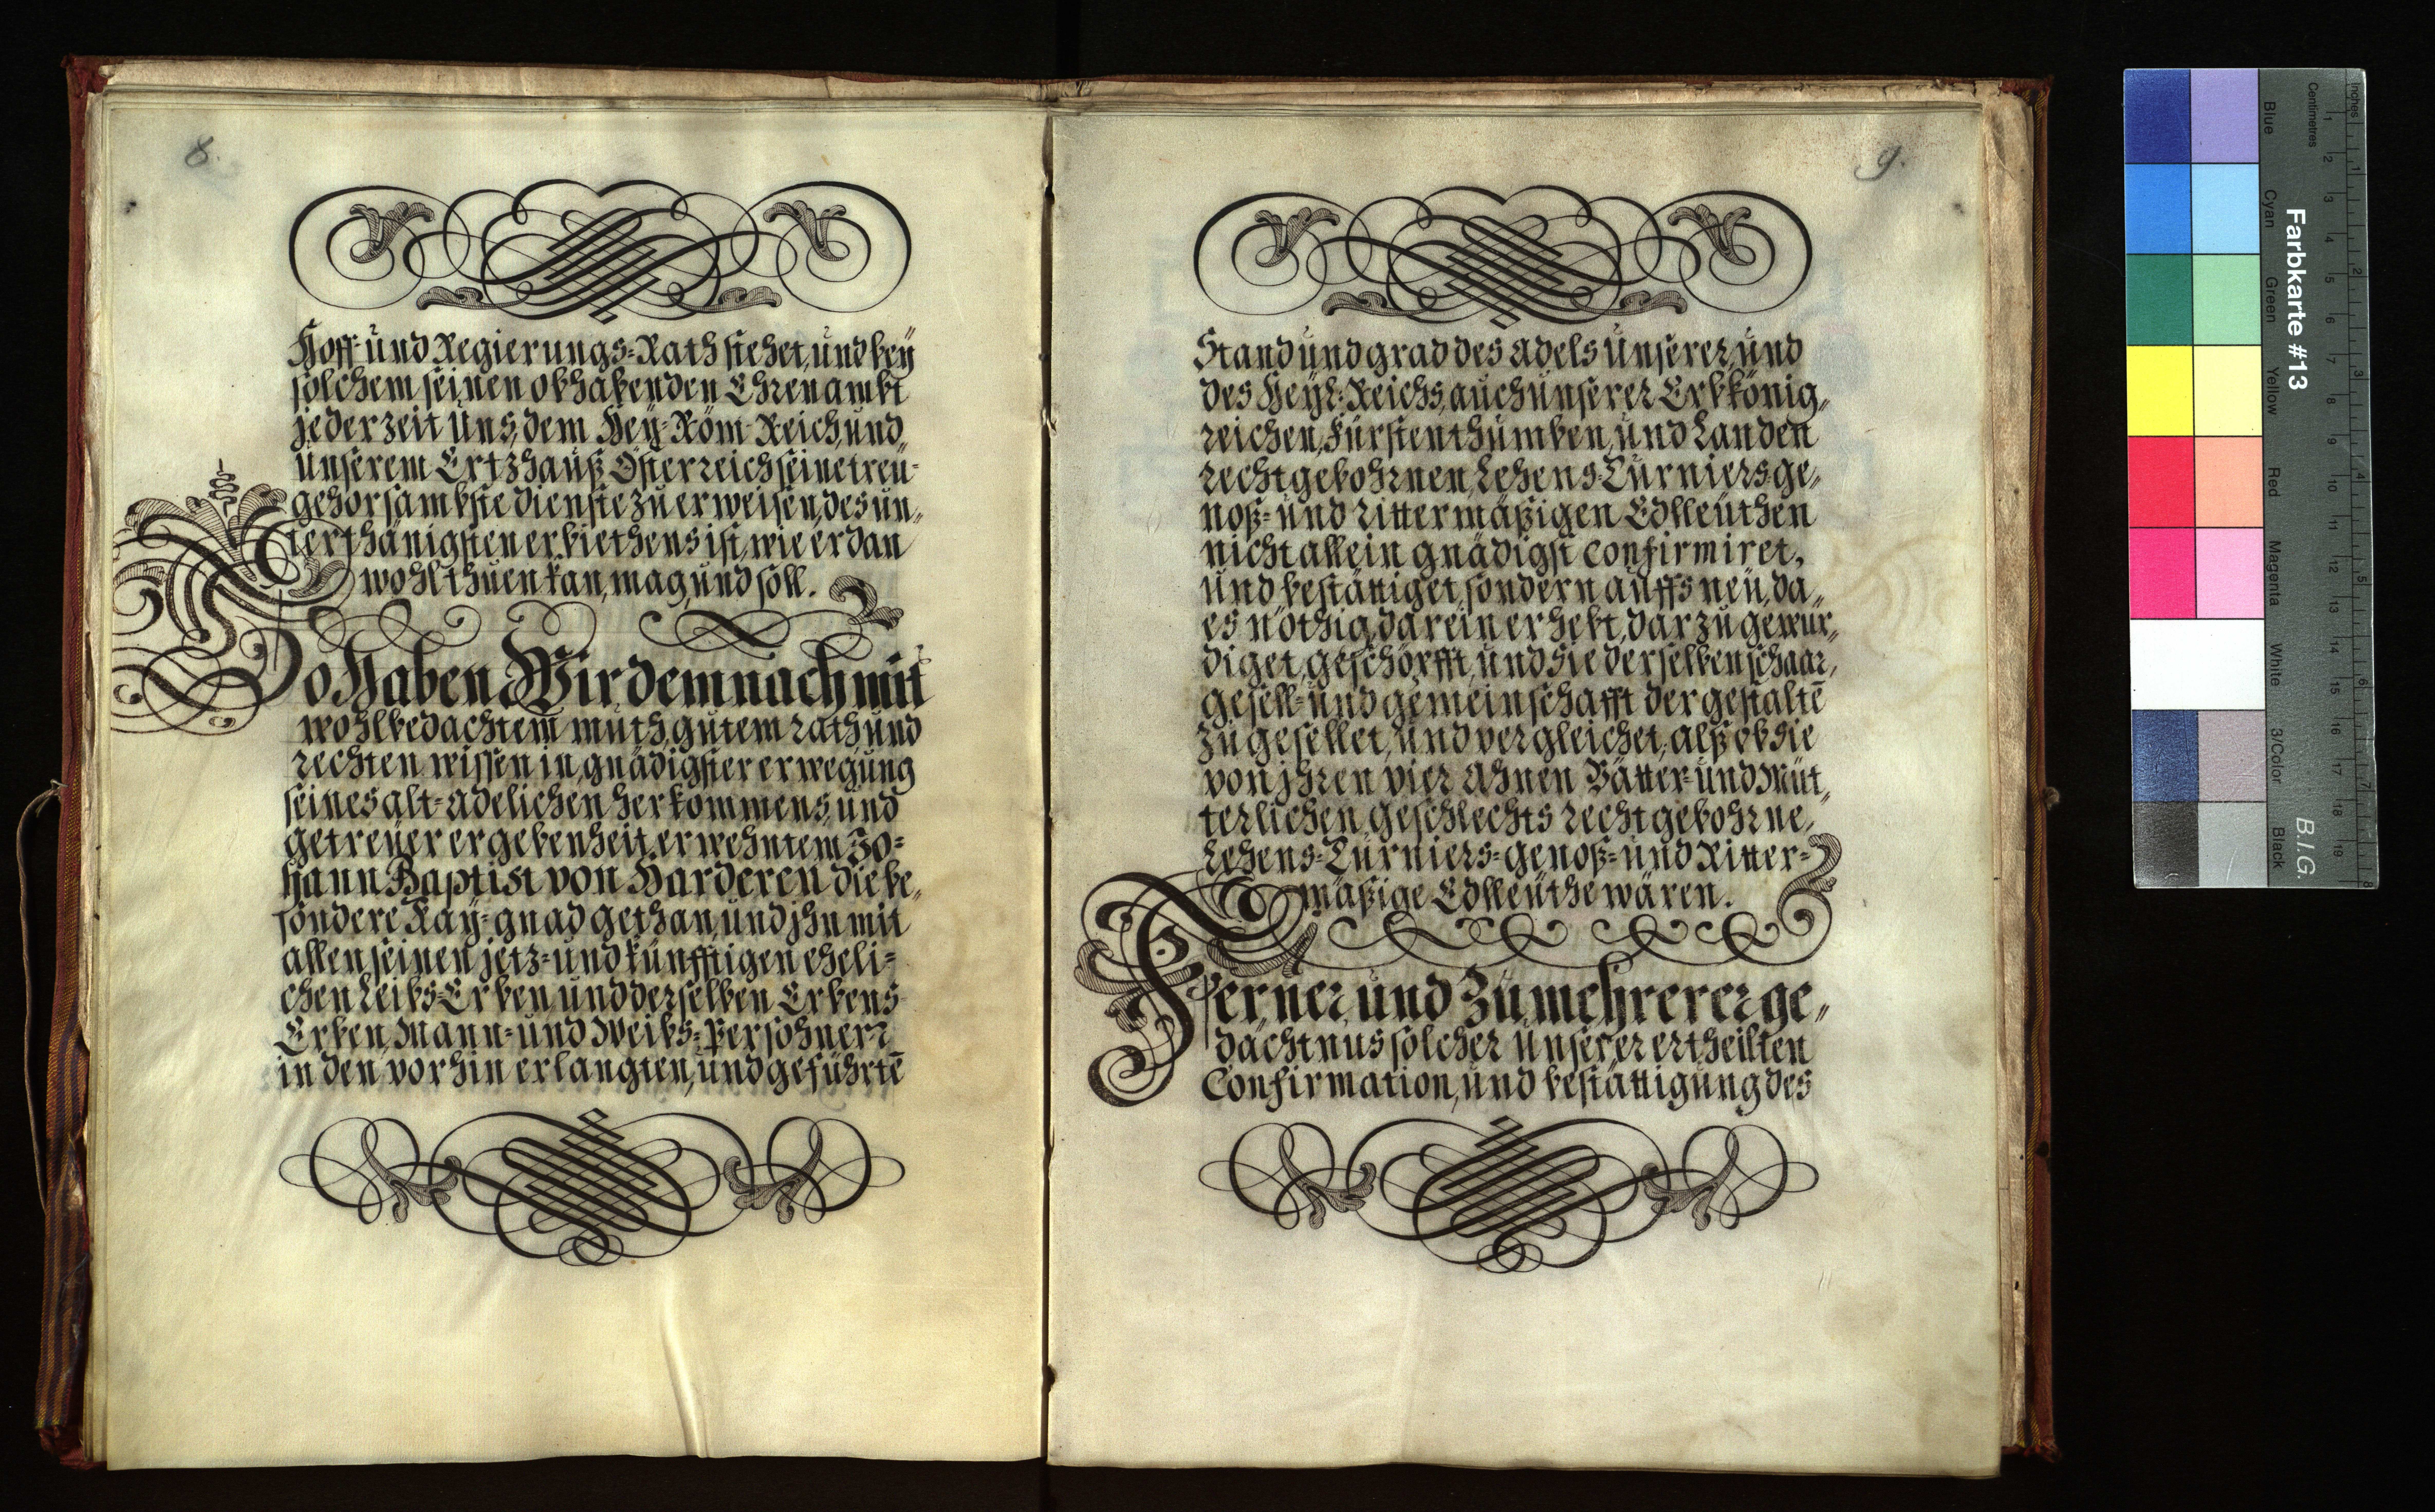 8.
Hoff- und Regierungs-Rath stehet, und bey
solchem seinen obhabenden Ehrenambt
jederzeit Uns, dem Hey: Röm: Reich, und
Unserem Ertzhauß Österreich seine treu-
gehorsambste dienste zu erweisen, des un-
terthänigsten erbiethens ist, wie er dan
wohl thuen kan, mag, und soll.
So Haben Wir demnach mit
wohlbedachtem muth, gutem rath und
rechten wissen in gnädigster erwegung
seines alt-adelichen herkommens, und
getreuer ergebenheit, erwehntem Jo-
hann Baptist von Harderen die be-
sondere Kay: gnad gethan, und jhn mit
allen seinen jetz- und künfftigen eheli-
chen Leibs-Erben, und derselben Erbens
Erben, Mann- und Weibs-Persohnen
in den vorhin erlangten, und geführtē
9.
Stand und grad des Adels Unserer, und
des Heyl: Reichs, auch unserer Erbkönig-
reichen, Fürstenthümben, und Landen
rechtgebohrnen, Lehens-Turniersge-
noß- und rittermäßigen Edlleüthen
nicht allein gnädigst confirmiret,
und bestättiget, sondern auffs neü, da
es nöthig, darein erhebt, darzu gewür-
diget, geschöpfft, und sie derselben schaar,
gesell- und gemeinschafft dergestaltē
zugesellet, und vergleichet, alß ob sie
von jhren vier Ahnen Vätter- und Müt-
terlichen geschlechts rechtgebohrne,
Lehens-Turniers-genoß- und Ritter-
mäßige Edlleüthe wären.
Ferner, und Zu mehrerer ge-
dächtnus solcher Unserer ertheilten
Confirmation, und bestättigung des
Farbkarte #13
B.I.G.
Inches
Centimetres
Blue
Cyan
Green
Yellow
Red
Magenta
White
3/Color
Black
1 2 3 4 5 6 7 8 9 10 11 12 13 14 15 16 17 18 19
1 2 3 4 5 6 7 8